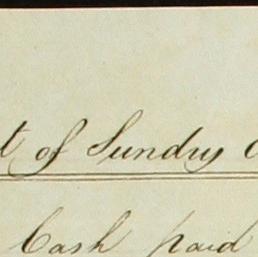 t of Sundry
Cash paid